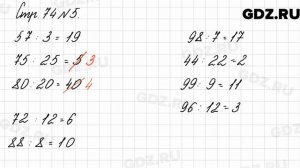 GDZ.RU
Стр. 74 №5.
57 : 3 = 19
75 : 25 = 5 3
80 : 20 = 40 4
72 : 12 = 6
88 : 8 = 10
98 : 7 = 17
44 : 22 = 2
99 : 9 = 11
96 : 12 = 3
GDZ.RU